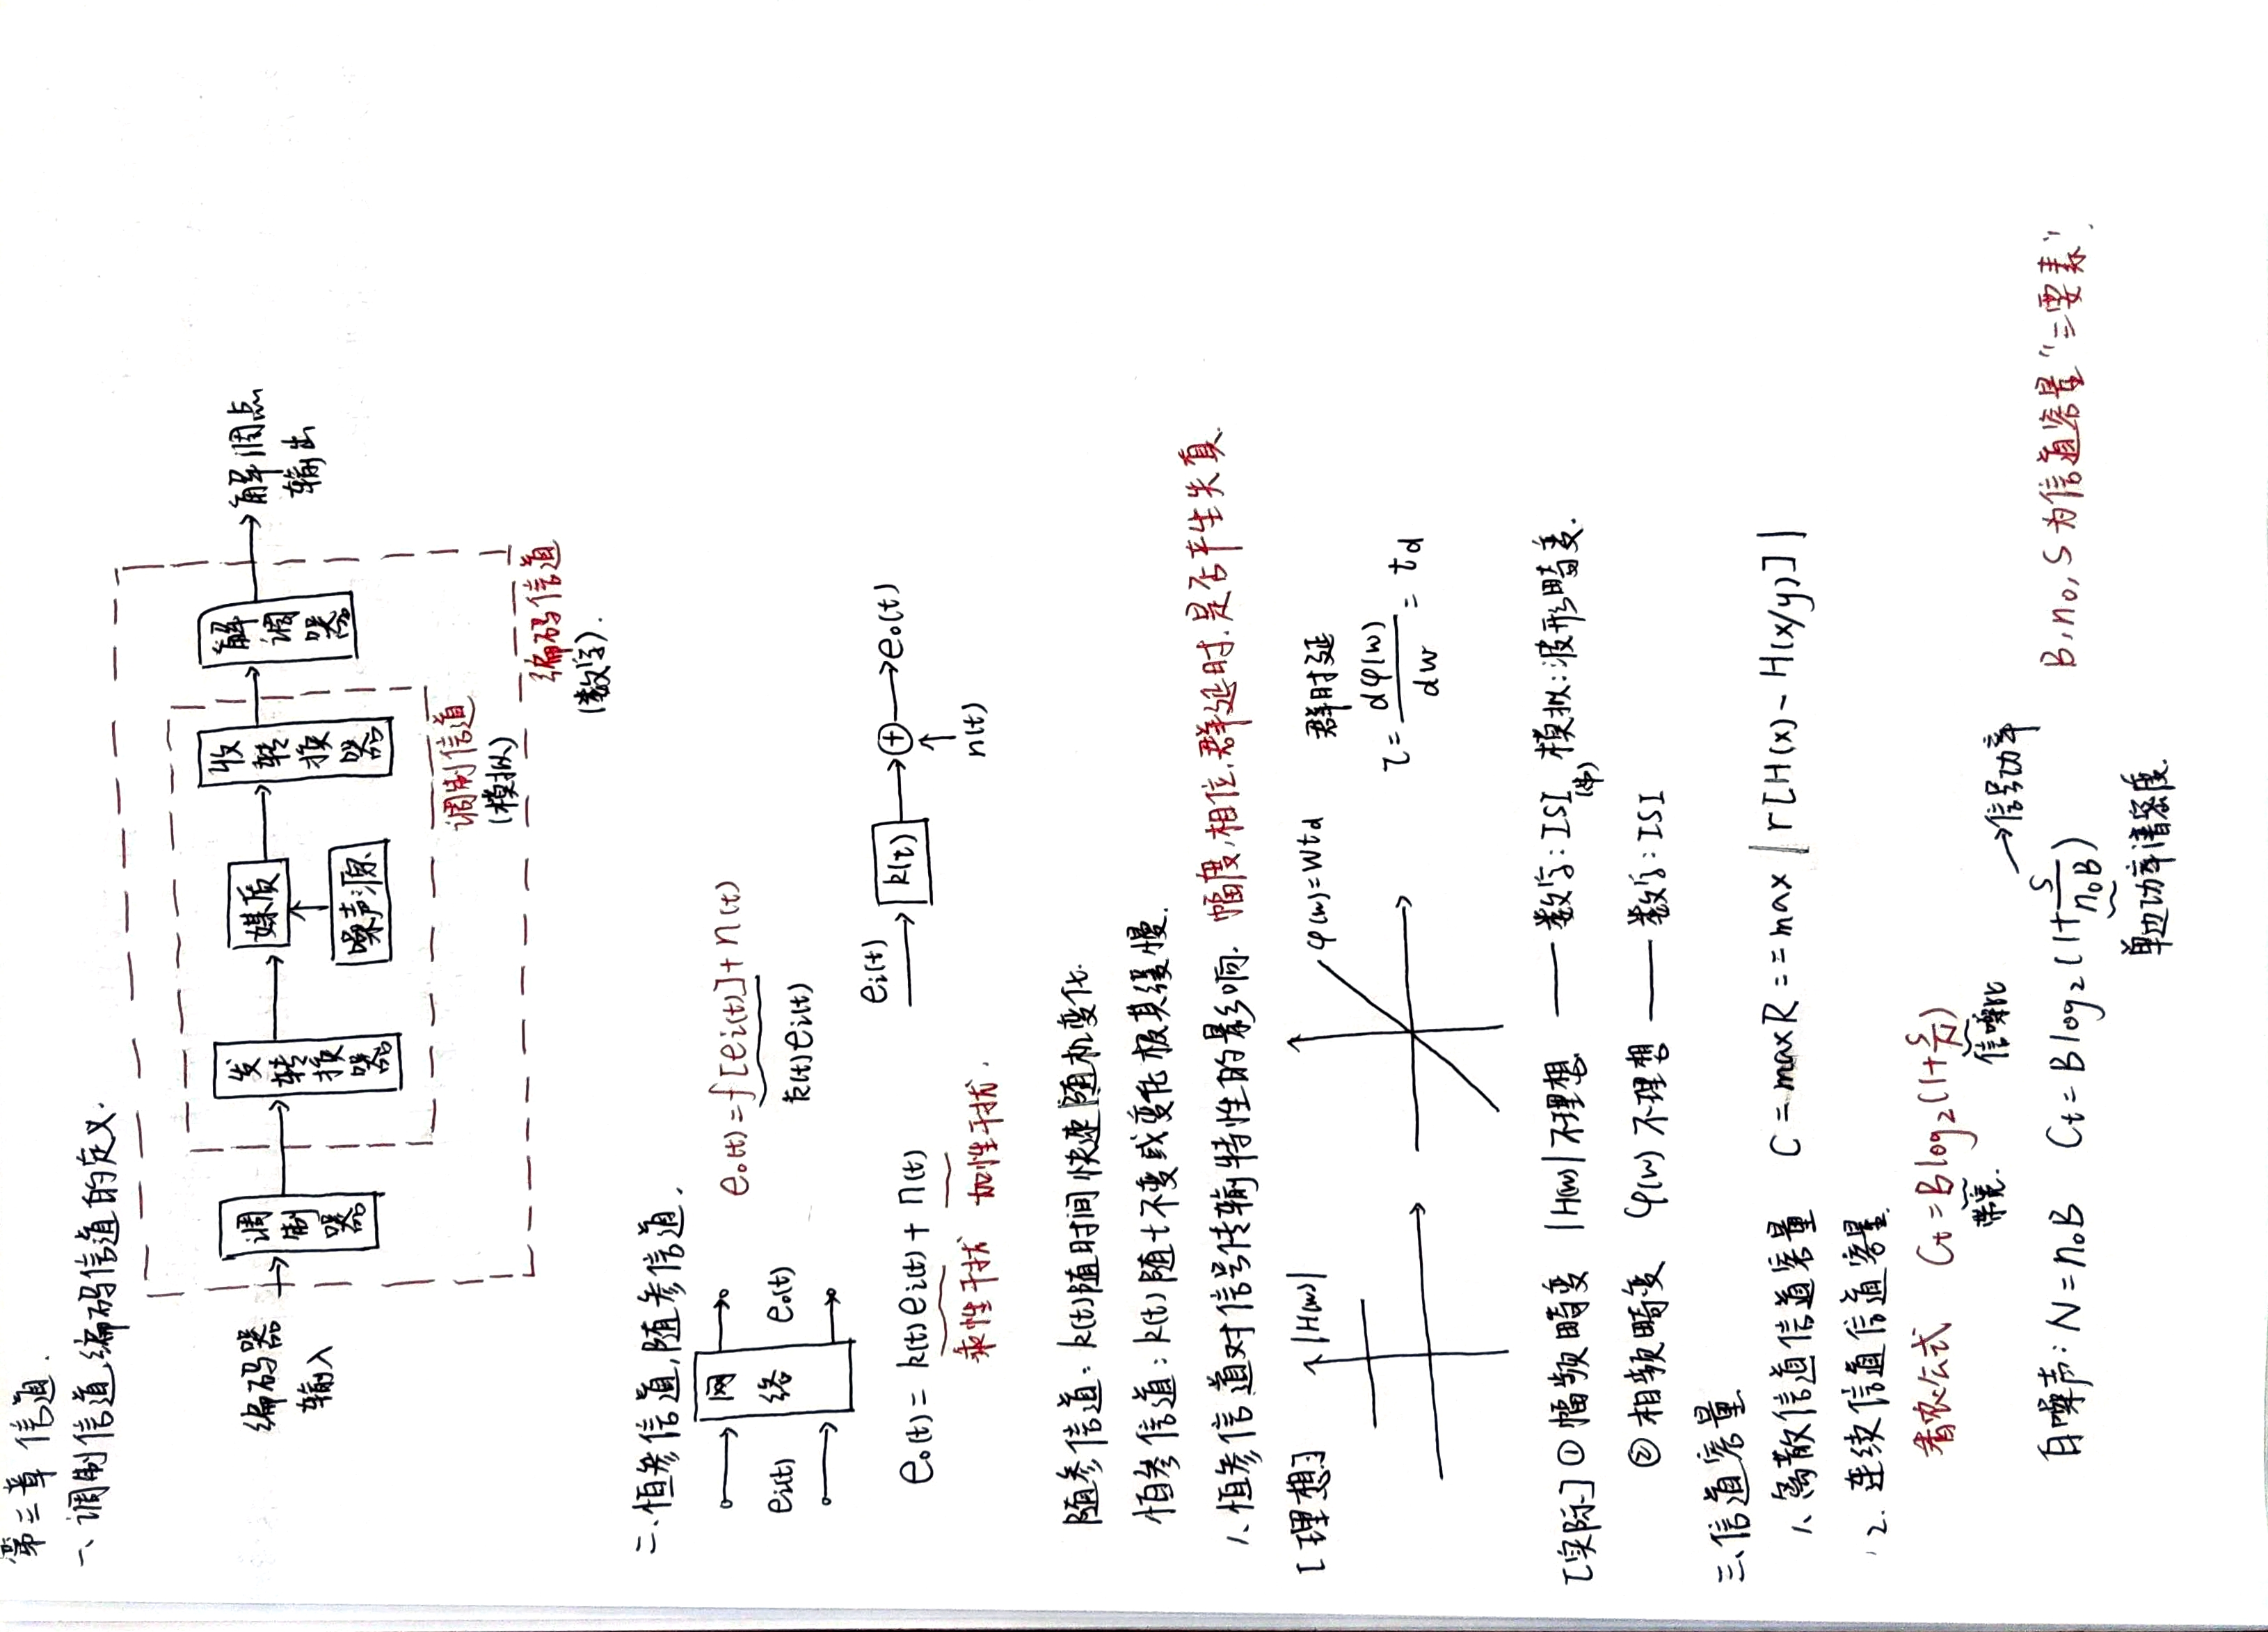 第三章 信道.
一、调制信道,编码信道的定义.
编码器输入
调制器
发转换器
媒质
噪声源
收转换器
解调器
解调点输出
调制信道
(模拟)
编码信道
(数字).
二、恒参信道,随参信道.
网络
ei(t)
eo(t)
eo(t)=f[ei(t)]+n(t)
k(t)ei(t)
eo(t)= k(t)ei(t)+ n(t)
乘性干扰 加性干扰.
ei(t)
k(t)
eo(t)
n(t)
随参信道:k(t)随时间快速随机变化.
恒参信道:k(t)随t不变或变化极其缓慢.
1、恒参信道对信号传输特性的影响. 幅度,相位,群延时.是否产生失真.
[理想]
|H(w)|
φ(w)=wtd
群时延
τ= dφ(w)/dw = td
[实际] ① 幅频畸变 |H(w)|不理想 —— 数字:ISI 模拟:波形畸变.
② 相频畸变 φ(w)不理想 —— 数字:ISI
三、信道容量
1、离散信道信道容量 C=maxR==max|r[H(x)-H(x/y)]|
2. 连续信道信道容量.
香农公式 Ct=Blog2(1+S/N)
带宽. 信噪比
白噪声:N=n0B Ct=Blog2(1+S/n0B) →信号功率
单边功率谱密度.
B,n0,S为信道容量"三要素".